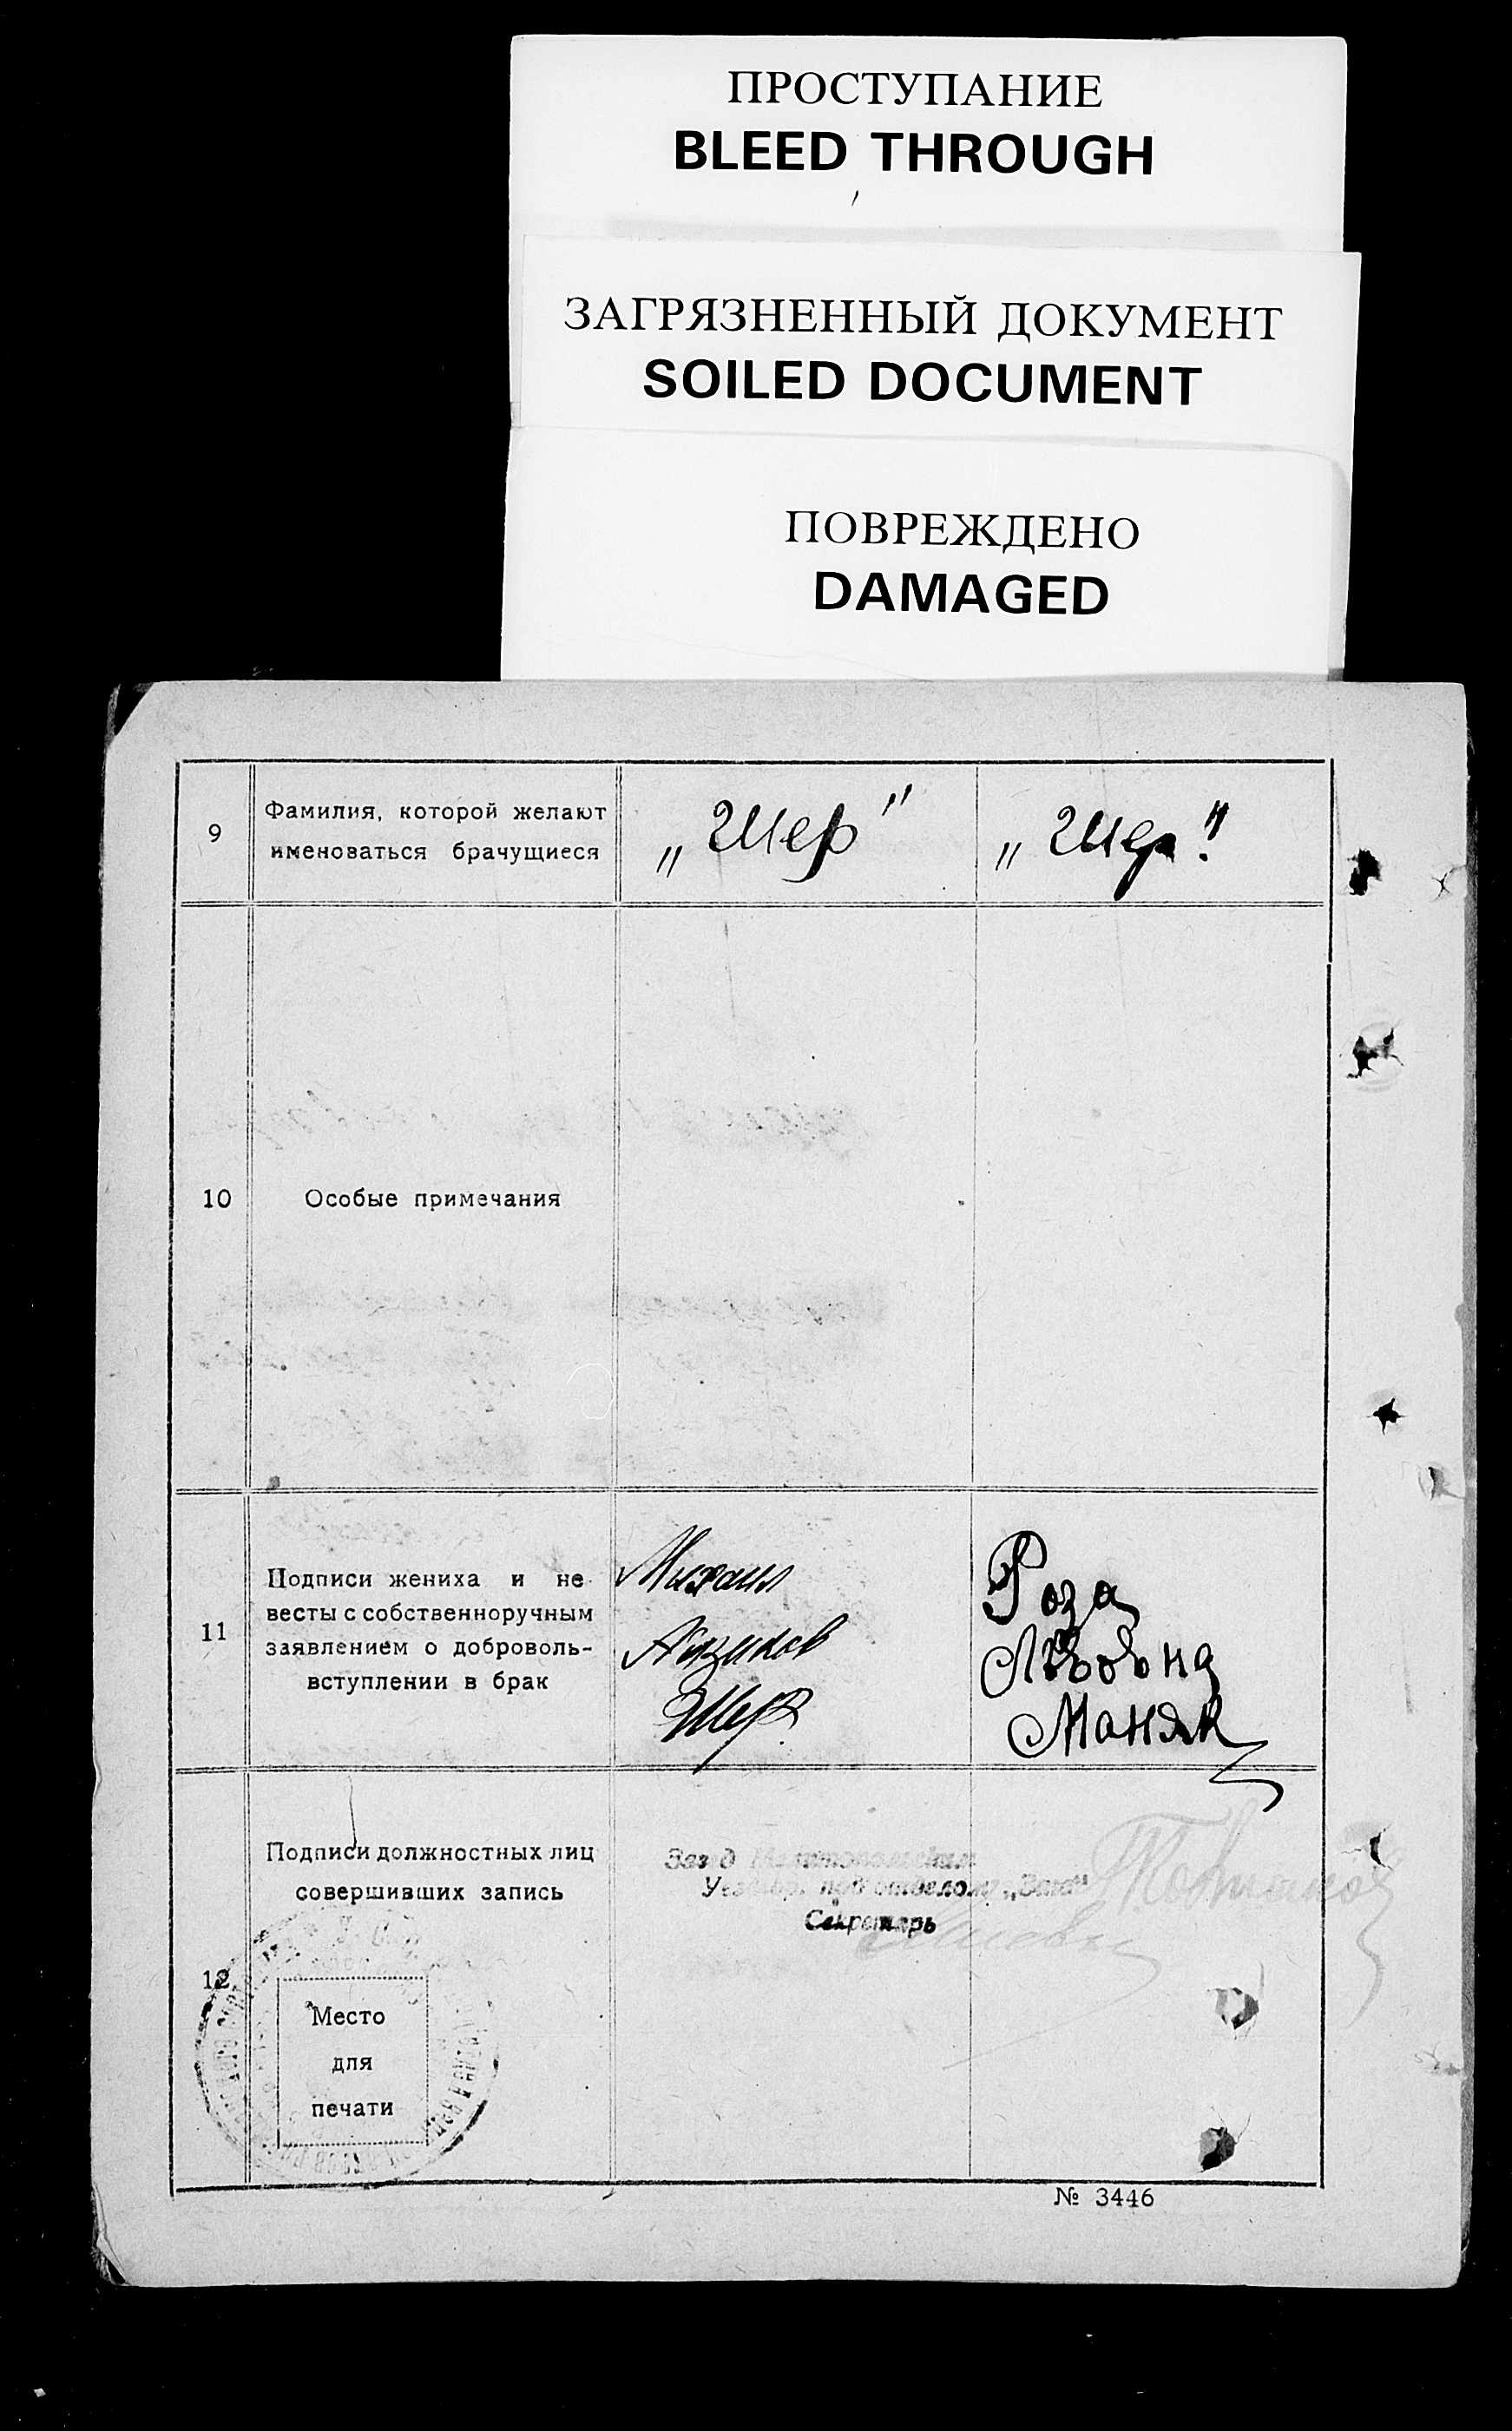 ПРОСТУПАНИЕ
BLEED THROUGH
ЗАГРЯЗНЕННЫЙ ДОКУМЕНТ
SOILED DOCUMENT
ПОВРЕЖДЕНО
DAMAGED
9
Фамилия, которой желают
именоваться брачущиеся
„Шер"
„Шер".
10
Особые примечания
11
Подписи жениха и не
весты с собственноручным
заявлением о доброволь-
вступлении в брак
Михаил
Шер
Роза
Львовна
Маняк
12
Подписи должностных лиц
совершивших запись
Зав д
под отделом „Загс"
Секретарь
Место
для
печати
№ 3446